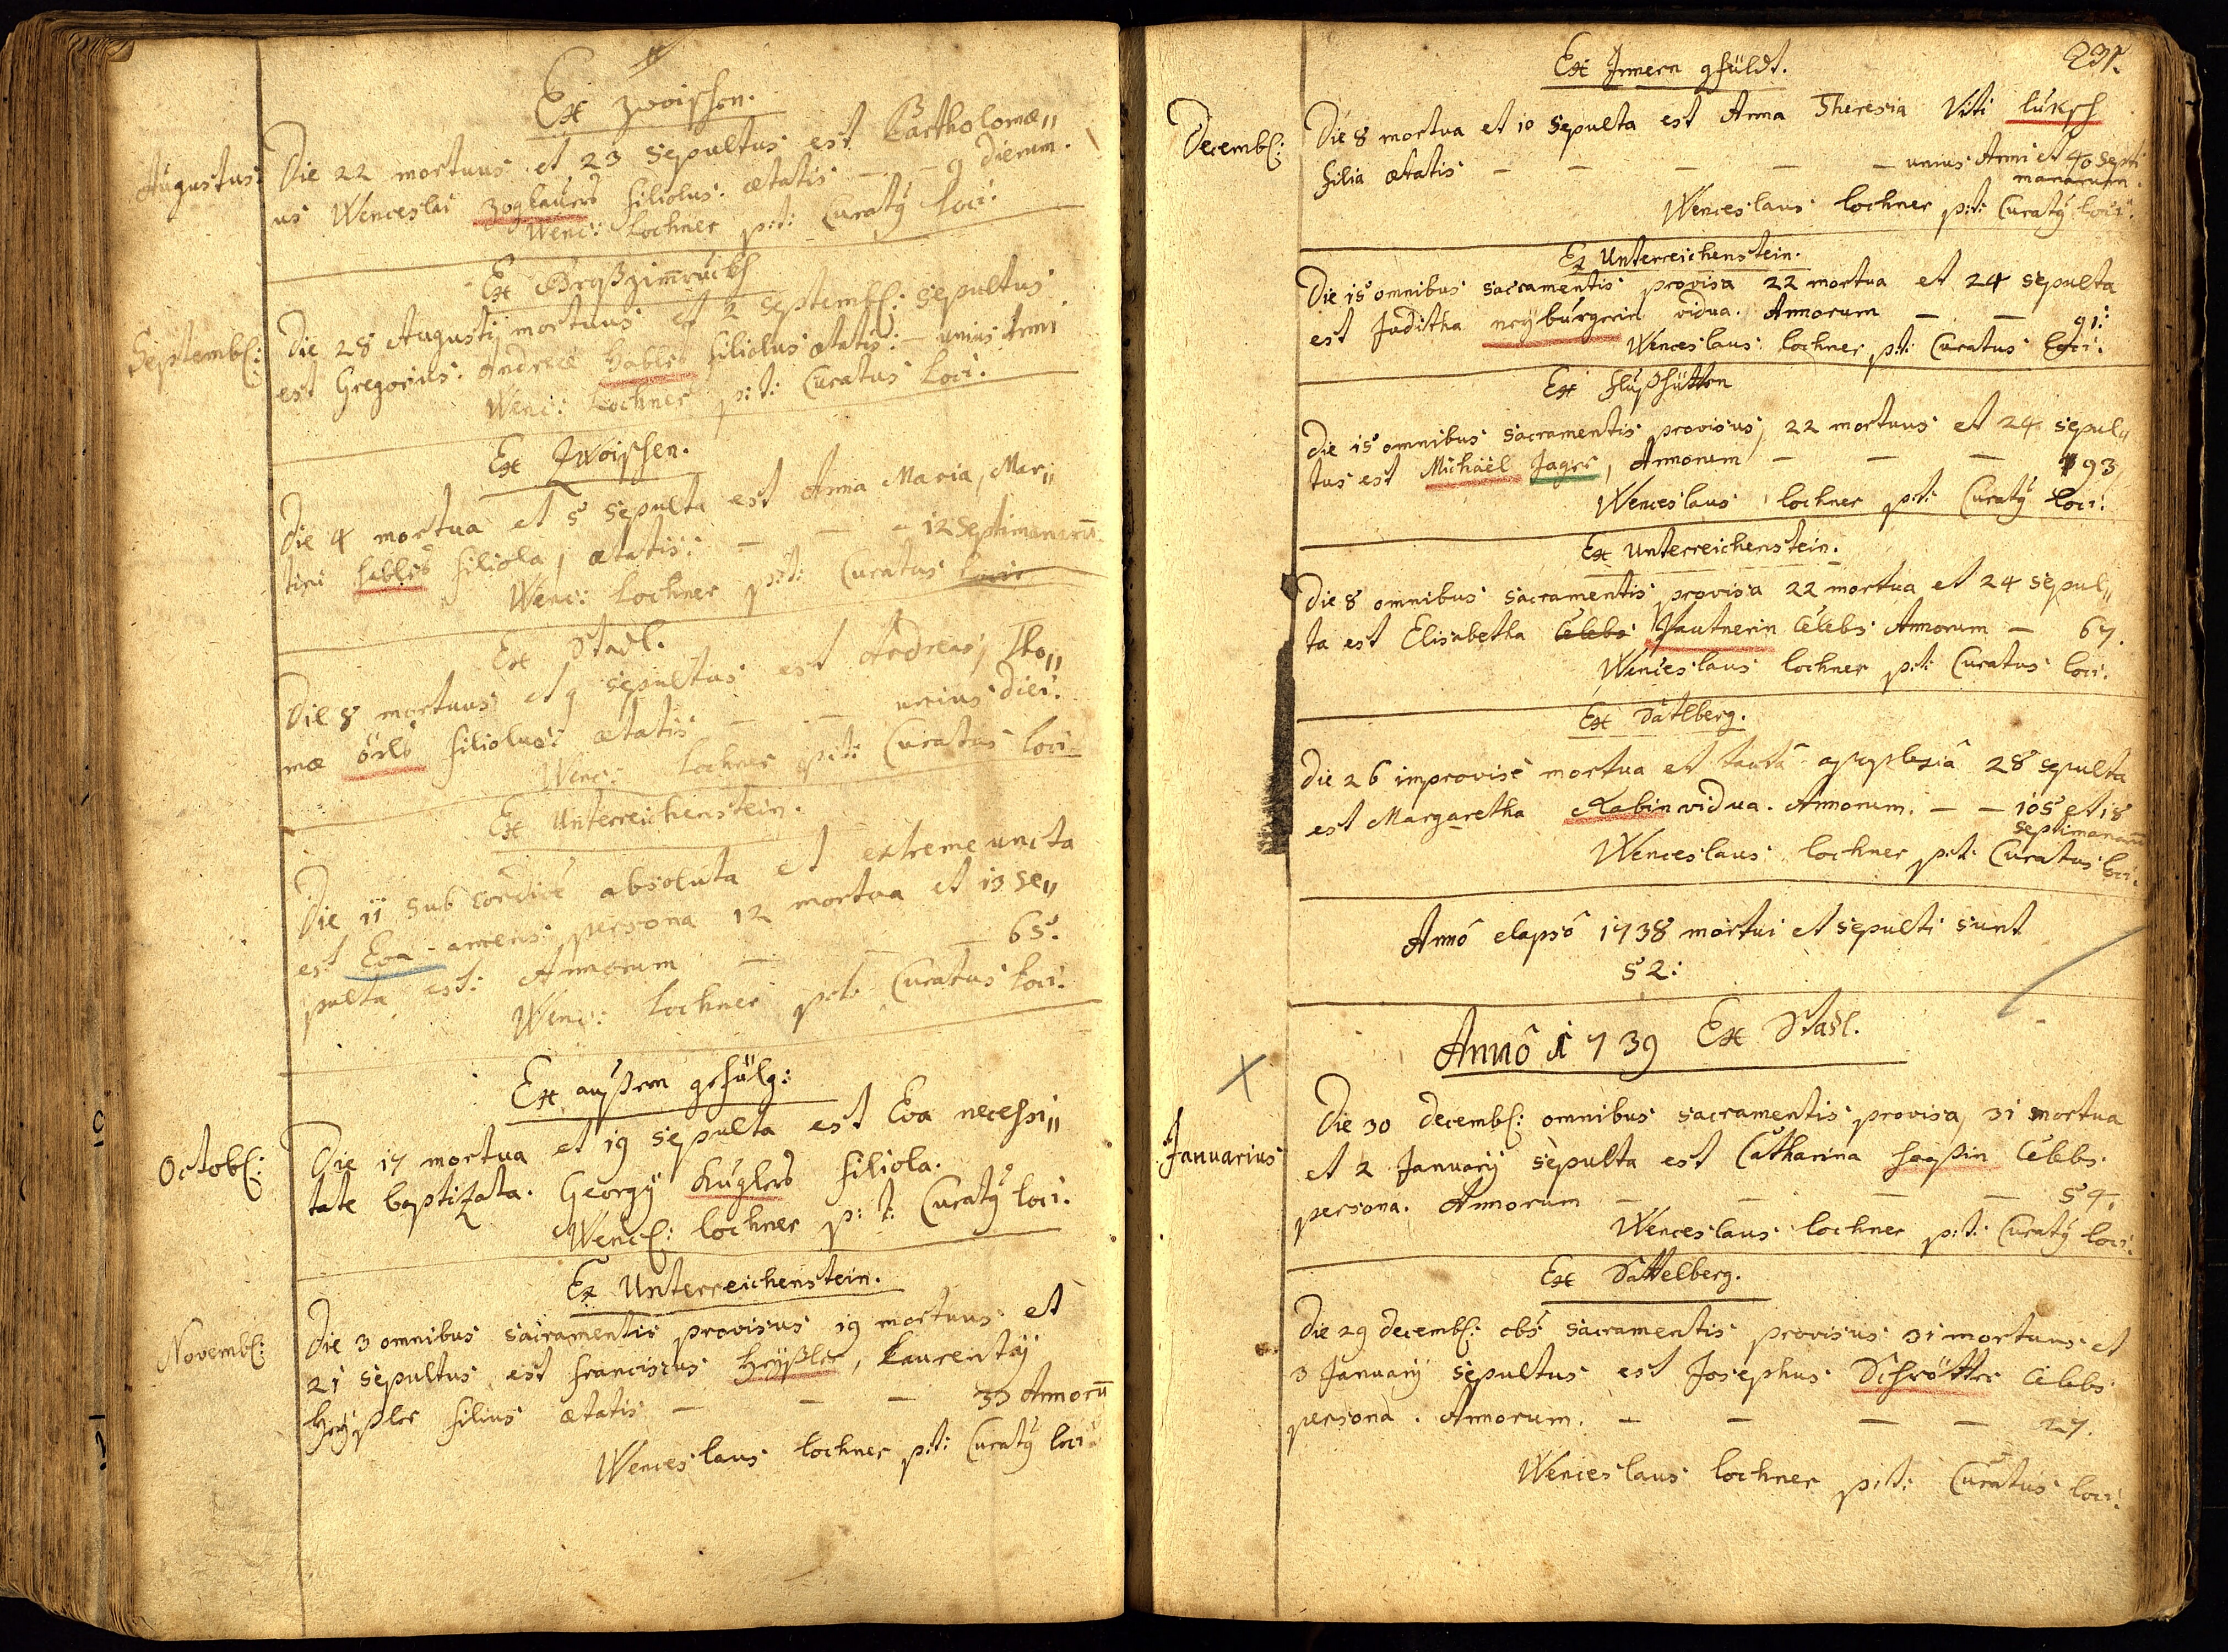 Ex Zwoischen.
Augustus: Die 22 mortuus et 23 sepultus est Bartholomæ„
us Wenceslai Zoglauers filiolus: ætatis — — 9 dierum.
Wenc: Lochner p:t: Curatȳ loci.
Ex Großzim̄ruckh
Septembr: Die 28 Augustÿ mortuus et 2 Septembr: sepultus
est Gregorius: Andreæ Hables filiolus ætatis: — unius Anni
Wenc: Lochner p:t: Curatus loci.
Ex Zwoischen.
Die 4 mortua et 5 sepulta est Anna Maria, Mar„
tini Hables filiola, ætatis: — — — 12 septimanarū
Wenc: Lochner p:t: Curatus loci
Ex Stadl.
Die 8 mortuus et 9 sepultus est Andreas, Tho„
mæ örls filiolus: ætatis — — unius diei.
Wenc: Lochner p:t: Curatus loci
Ex Unterreichenstein.
Die 11 sub condicē absoluta et extreme uncta
est Eva amens persona 12 mortua et 13 se„
pulta est: Annorum — — — 65.
Wenc: Lochner p:t: Curatus loci.
Ex außern gefülg:
Octobr: Die 17 mortua et 19 sepulta est Eva necessi„
tate baptizata. Georgÿ Kuglers filiola.
Wencl: Lochner p:t: Curatȳ loci.
Ex Unterreichenstein.
Novembr: Die 3 omnibus sacramentis provisus 19 mortuus et
21 sepultus est Franciscus Heÿßler, Laurentÿ
Heÿßler filius ætatis — — — 33 Annorū
Wenceslaus Lochner p:t: Curatȳ loci
231.
Ex Innern gfüldt.
Decembr: Die 8 mortua et 10 sepulta est Anna Theresia Viti Luksch
filia ætatis — — — — — unius Anni et 40 septi
manarum.
Wenceslaus Lochner p:t: Curatȳ loci.
Ex Unterreichenstein.
Die 15 omnibus sacramentis provisa 22 mortua et 24 sepulta
est Juditha neÿburgerin vidua. Annorum — — 91:
Wenceslaus Lochner p:t: Curatus loci.
Ex Flußhütten
Die 15 omnibus sacramentis provisus, 22 mortuus et 24 sepul„
tus est Michaël Jager, Annorum — — — 93
Wenceslaus Lochner p:t: Curatȳ loci.
Ex Unterreichenstein.
Die 8 omnibus sacramentis provisa 22 mortua et 24 sepul„
ta est Elisabetha Cælebs Jautnerin Cælebs Annorum — 67.
Wenceslaus Lochner p:t: Curatus loci.
Ex Satlberg.
Die 26 improvisè mortua et tactâ apoplexiâ 28 sepulta
est Margaretha Rabin vidua. Annorum. — — 105 et 18
septimanarū
Wenceslaus Lochner p:t: Curatus loci.
Annô elapsô 1738 mortui et sepulti sunt
52:
Annô 1739 Ex Stadl.
Die 30 Decembr: omnibus sacramentis provisa, 31 mortua
Januarius et 2 Januarÿ sepulta est Catharina Haaßin Cælebs.
persona. Annorum — — — — 54.
Wenceslaus Lochner p:t: Curatȳ loci.
Ex Sattelberg.
Die 29 Decembr: obs sacramentis provisus 31 mortuus et
3 Januarÿ sepultus est Josephus Schrötter Cælebs
persona. Annorum. — — — — 27.
Wenceslaus Lochner p:t: Curatus loci.